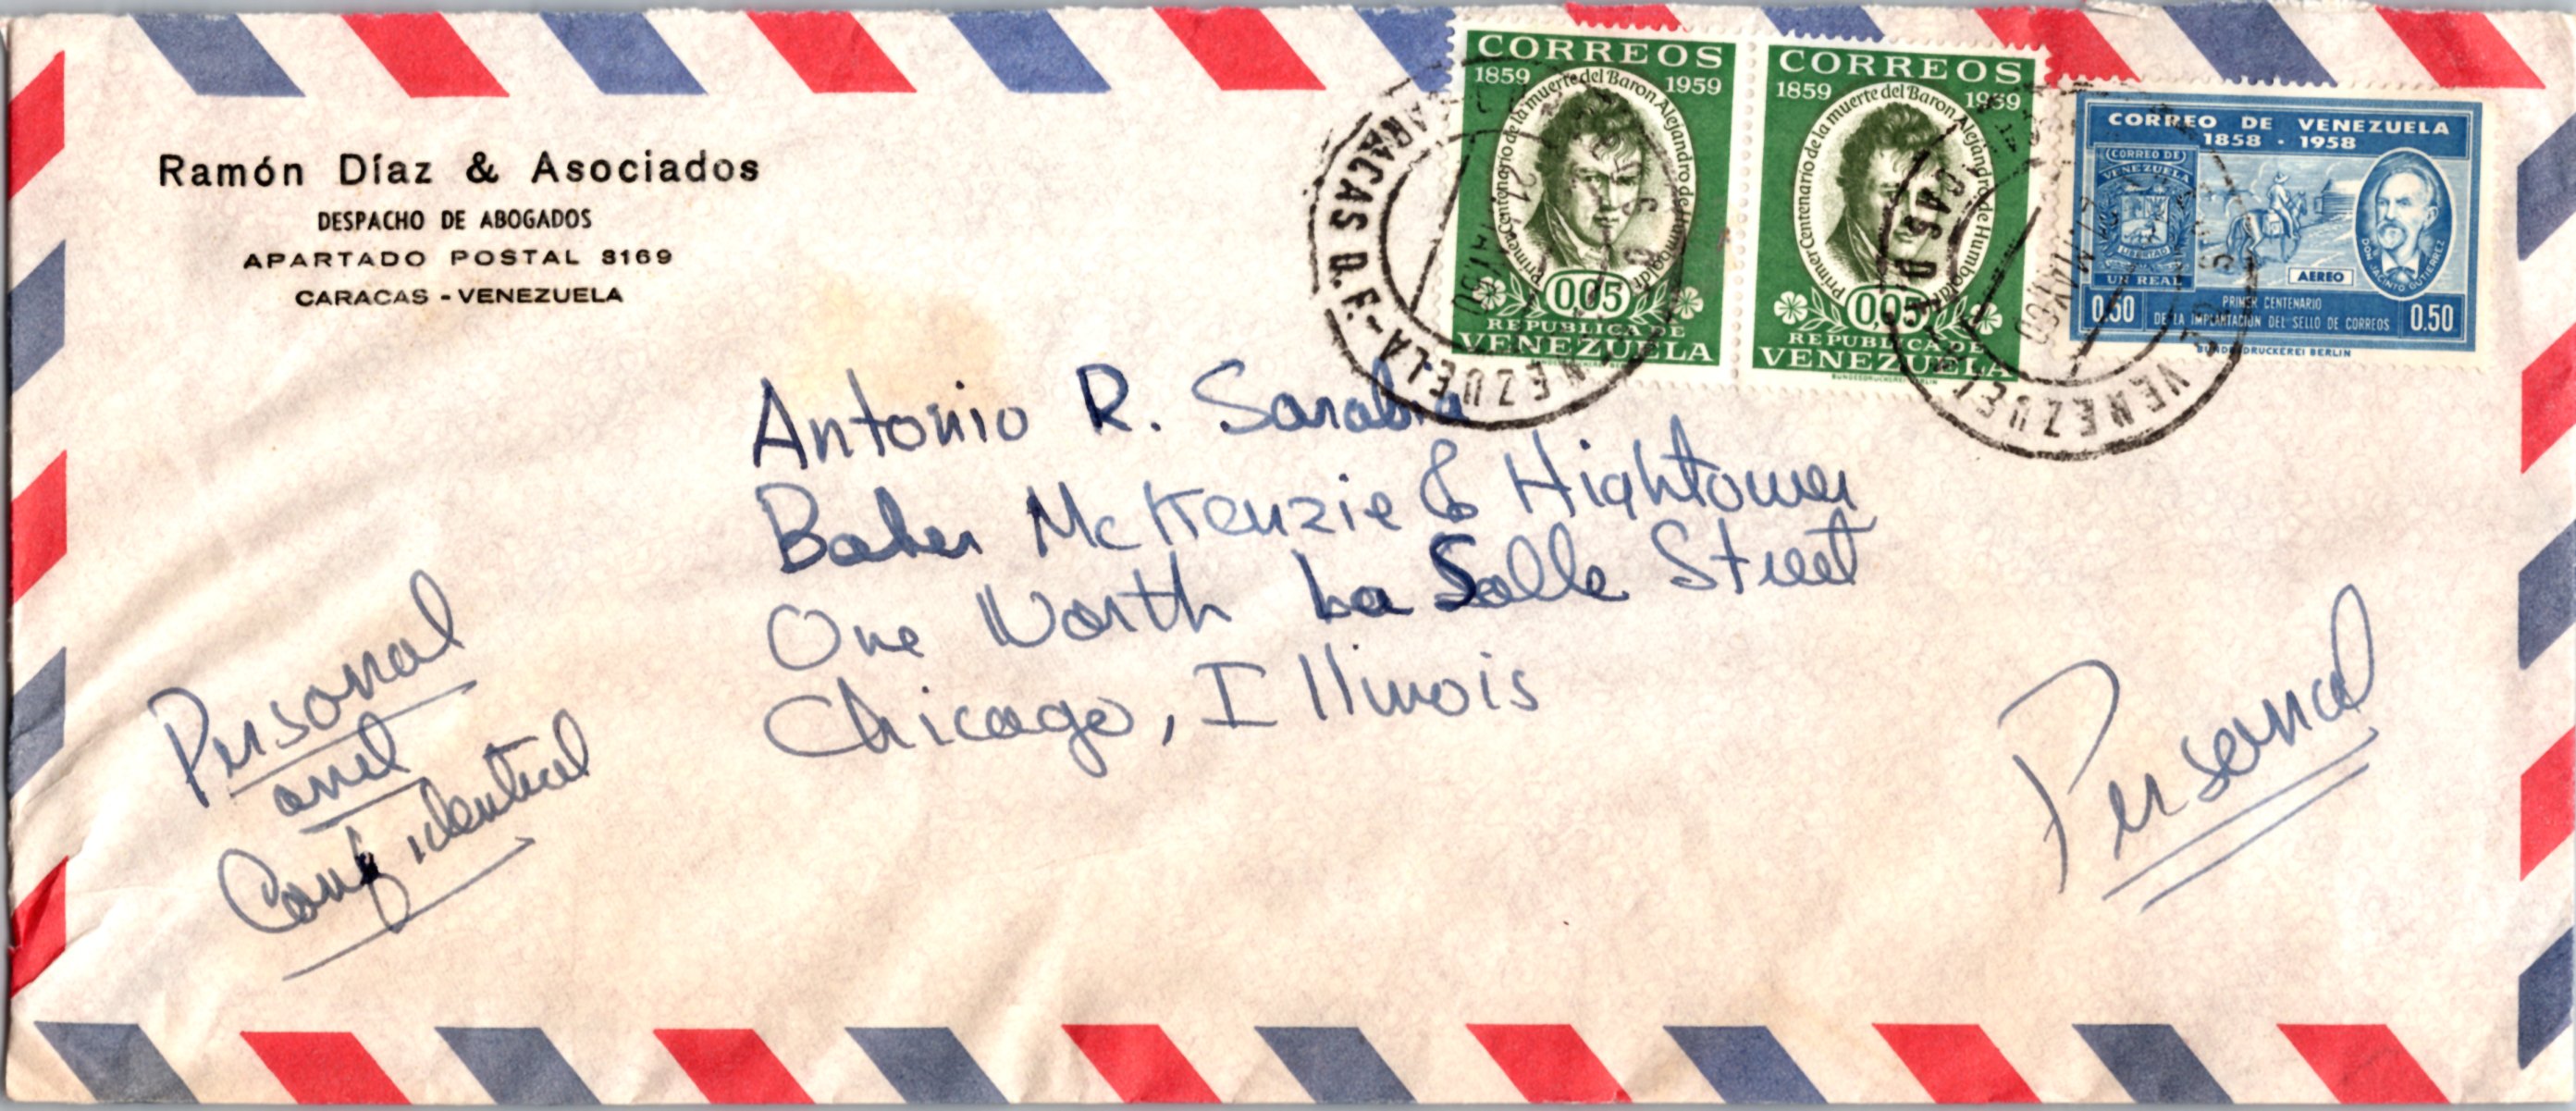 Ramón Díaz & Asociados
DESPACHO DE ABOGADOS
APARTADO POSTAL 8169
CARACAS - VENEZUELA
CORREOS
1859 1959
Primer Centenario de la muerte del Baron Alejandro de Humboldt
0,05
REPUBLICA DE
VENEZUELA
CORREOS
1859 1959
Primer Centenario de la muerte del Baron Alejandro de Humboldt
0,05
REPUBLICA DE
VENEZUELA
BUNDESDRUCKEREI BERLIN
CORREO DE VENEZUELA
1858 - 1958
CORREO DE
VENEZUELA
LIBERTAD
UN REAL
AEREO
DON JACINTO GUTIERREZ
0.50
PRIMER CENTENARIO
DE LA IMPLANTACION DEL SELLO DE CORREOS
0.50
BUNDESDRUCKEREI BERLIN
CARACAS D.F. - VENEZUELA
CARACAS D.F. - VENEZUELA
Antonio R. Sarabia
Baker McKenzie & Hightower
One North La Salle Street
Chicago, Illinois
Personal
and
Confidential
Personal